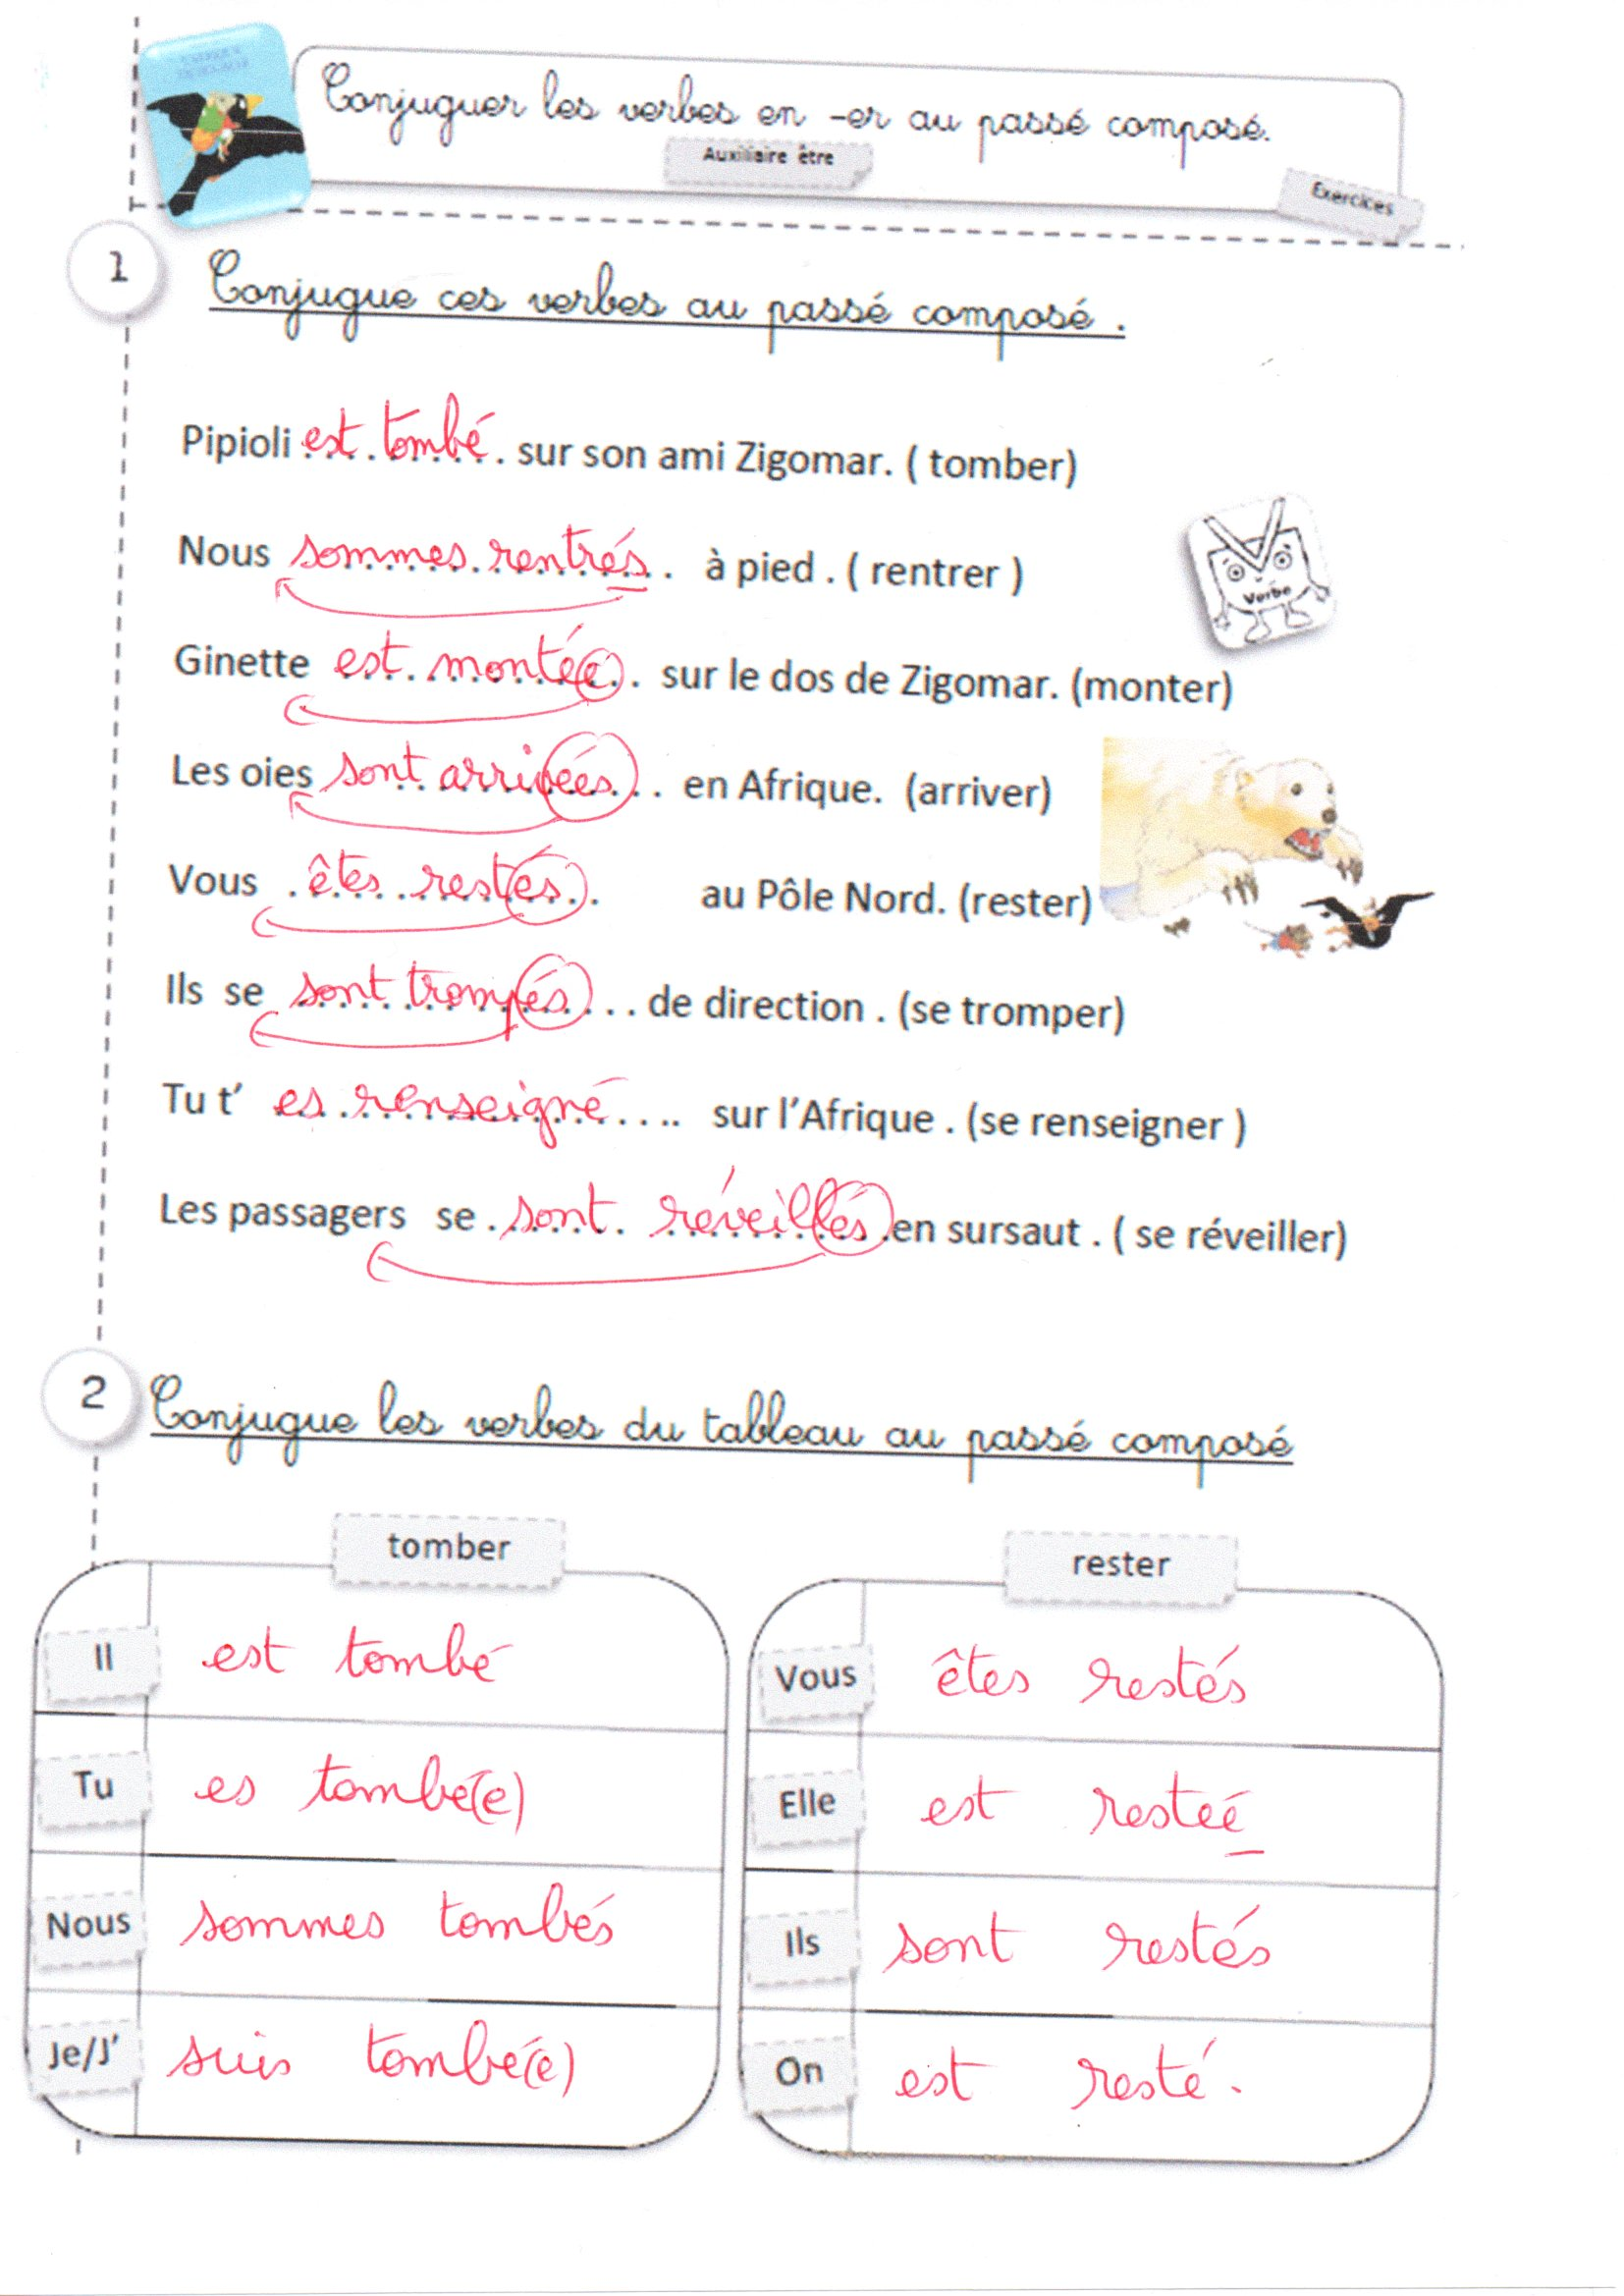 Conjuguer les verbes en -er au passé composé.
Auxiliaire être
Exercices
1
Conjugue ces verbes au passé composé .
Pipioli est tombé sur son ami Zigomar. ( tomber)
Nous sommes rentrés à pied . ( rentrer )
Ginette est montée sur le dos de Zigomar. (monter)
Verbe
Les oies sont arrivées en Afrique. (arriver)
Vous êtes restés au Pôle Nord. (rester)
Ils se sont trompés de direction . (se tromper)
Tu t' es renseigné sur l'Afrique . (se renseigner )
Les passagers se sont réveillés en sursaut . ( se réveiller)
2
Conjugue les verbes du tableau au passé composé
tomber
Il est tombé
Tu es tombé(e)
Nous sommes tombés
Je/J' suis tombé(e)
rester
Vous êtes restés
Elle estresteé
Ils sont restés
On est resté.